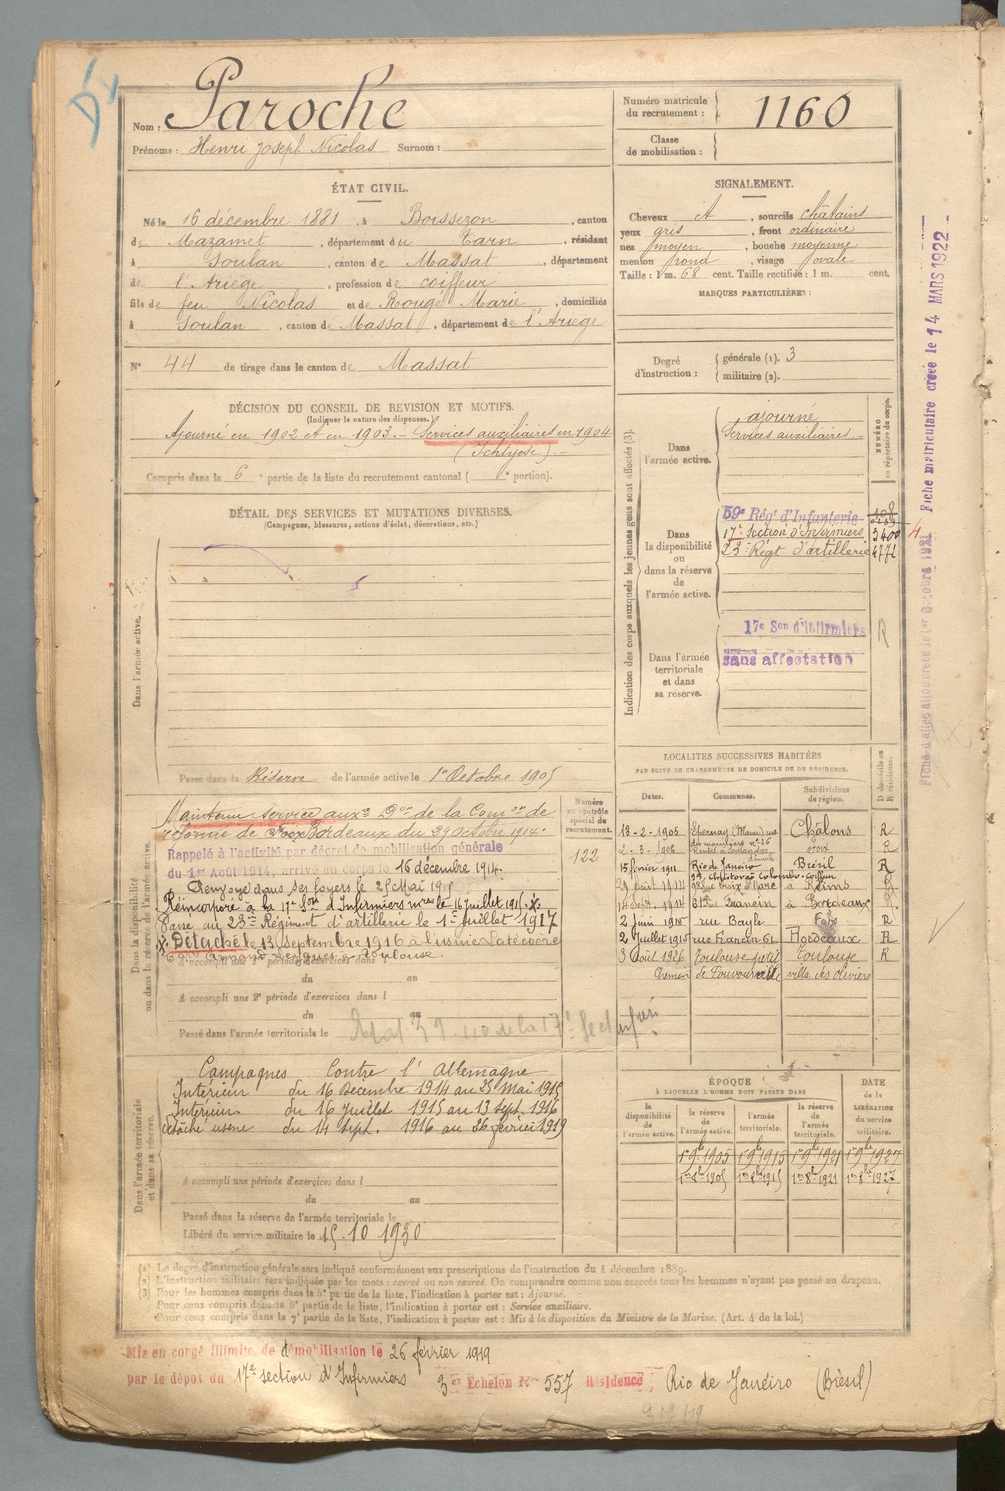 Nom : Paroche
Prénoms : Henri Joseph Nicolas Surnom :
Numéro matricule du recrutement : 1160
Classe de mobilisation :
ÉTAT CIVIL.
Né le 16 décembre 1881, à Boissezon, canton
de Mazamet, département du Tarn, résidant
à Soulan, canton de Massat, département
de l'Ariège, profession de coiffeur
fils de feu Nicolas et de Rougé Marie, domiciliés
à Soulan, canton de Massat, département de l'Ariège
N° 44 de tirage dans le canton de Massat
SIGNALEMENT.
Cheveux et, sourcils châtains
yeux gris, front ordinaire
nez moyen, bouche moyenne
menton rond, visage ovale
Taille : 1 m. 68 cent. Taille rectifiée : 1 m. cent.
MARQUES PARTICULIÈRES :
Degré d'instruction : générale (1). 3
militaire (2).
DÉCISION DU CONSEIL DE REVISION ET MOTIFS.
(Indiquer la nature des dispenses.)
Ajourné en 1902 et en 1903. - Services auxiliaires en 1904
(Ichtyose) -
Compris dans la 6e partie de la liste du recrutement cantonal ( e portion).
DÉTAIL DES SERVICES ET MUTATIONS DIVERSES.
(Campagnes, blessures, actions d'éclat, décorations, etc.)
Dans l'armée active.
Passé dans la Réserve de l'armée active le 1er Octobre 1905
Indication des corps auxquels les jeunes gens sont affectés (3).
NUMÉRO au répertoire du corps.
Dans l'armée active.
ajourné
Services auxiliaires -
Dans la disponibilité ou dans la réserve de l'armée active.
59e Régt d'Infanterie
17e Section d'Infirmiers 3400
23e Régt d'artillerie 4772
Dans l'armée territoriale et dans sa réserve.
17e Son d'Infirmiers R
sans affectation
Fiche matriculaire créée le 14 MARS 1922
Dans la disponibilité ou dans la réserve de l'armée active.
Maintenu service auxre Don de la Comon de
réforme de Foix Bordeaux du 29 Octobre 1914.
Rappelé à l'activité par décret de mobilisation générale
du 1er Août 1914, arrivé au corps le 16 décembre 1914.
Renvoyé dans ses foyers le 25 Mai 1915
Réincorporé à la 17e Son d'Infirmiers mres le 16 juillet 1915.
Passé au 23me Régiment d'artillerie le 1er Juillet 1917
Détaché le 13 septembre 1916 à l'usine Latécoère
à Toulouse.
A accompli une 1re période d'exercices dans l
du au
A accompli une 2e période d'exercices dans l
du au
Passé dans l'armée territoriale le
Numéro au contrôle spécial du recrutement.
122
LOCALITÉS SUCCESSIVES HABITÉES
PAR SUITE DE CHANGEMENTS DE DOMICILE OU DE RÉSIDENCE.
Dates. Communes. Subdivisions de région. D domicile ou R résidence.
13-2-1905 Epernay (Marne) Châlons R
2-3-1906 Foix R
15 février 1911 Rio de Janeiro Brésil R
à Reims
à Bordeaux
2 Juin 1915 rue Bayle Foix R
2 Juillet 1915 rue Francin 61 Bordeaux R
3 Août 1926 Toulouse Toulouse R
villa des oliviers
Dans l'armée territoriale et dans sa réserve.
Campagnes Contre l'Allemagne
Intérieur du 16 Décembre 1914 au 25 Mai 1915
Intérieur du 16 Juillet 1915 au 13 Sept. 1916
détaché usine du 14 Sept. 1916 au 26 février 1919
A accompli une période d'exercices dans l
du au
Passé dans la réserve de l'armée territoriale le
Libéré du service militaire le 15.10 1930
ÉPOQUE
À LAQUELLE L'HOMME DOIT PASSER DANS
la disponibilité de l'armée active. la réserve de l'armée active. l'armée territoriale. la réserve de l'armée territoriale. DATE de la LIBÉRATION du service militaire.
1er 9bre 1905 1er 9bre 1915 1er 9bre 1921 1er 9bre 1927
1er 8bre 1905 1er 8bre 1915 1er 8bre 1921 1er 8bre 1927
(1) Le degré d'instruction générale sera indiqué conformément aux prescriptions de l'instruction du 4 décembre 1889.
(2) L'instruction militaire sera indiquée par les mots : exercé ou non exercé. On comprendra comme non exercés tous les hommes n'ayant pas passé au drapeau.
(3) Pour les hommes compris dans la 5e partie de la liste, l'indication à porter est : Ajourné.
Pour ceux compris dans la 6e partie de la liste, l'indication à porter est : Service auxiliaire.
Pour ceux compris dans la 7e partie de la liste, l'indication à porter est : Mis à la disposition du Ministre de la Marine. (Art. 4 de la loi.)
Mis en congé illimité de démobilisation le 26 février 1919
par le dépôt du 17e section d'Infirmiers 3er Echelon N° 557 Résidence Rio de Janéiro (Brésil)